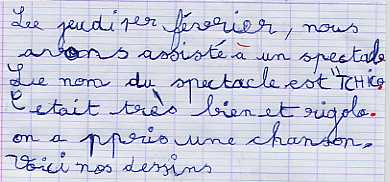 Le jeudi 1er février, nous
avons assisté à un spectacle
Le nom du spectacle est "TCHico.
C'etait très bien et rigolo.
on a appris une chanson.
Voici nos dessins